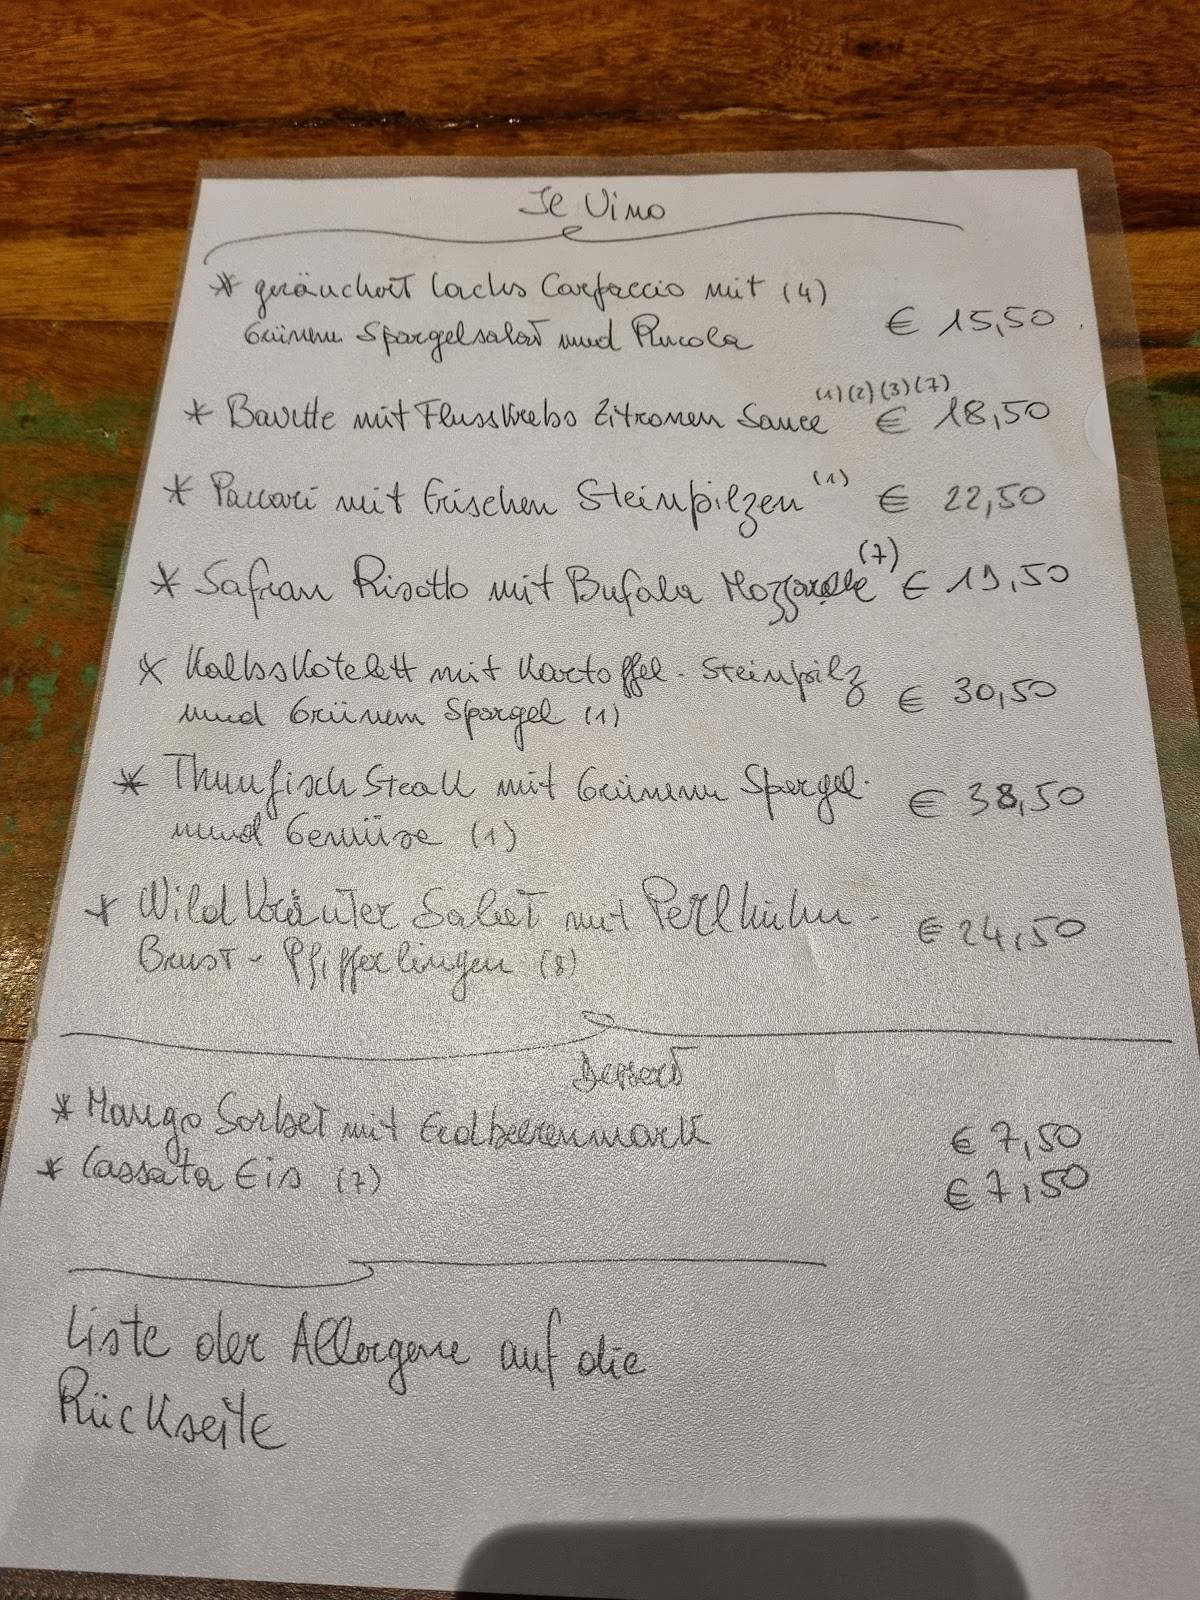 Il Vino
* geräuchert Lachs Carpaccio mit (4)
Grünem Spargelsalat und Rucola € 15,50
* Bavette mit Flusskrebs Zitronen Sauce (1) (2) (3) (7) € 18,50
* Paccari mit frischen Steinpilzen (1) € 22,50
* Safran Risotto mit Bufala Mozzarella (7) € 19,50
* Kalbskotelett mit Kartoffel - Steinpilz
und Grünem Spargel (1) € 30,50
* Thunfisch Steak mit Grünem Spargel -
und Gemüse (1) € 38,50
* Wildkräuter Salat mit Perlhuhn -
Brust - Pfifferlingen (8) € 24,50
Dessert
* Mango Sorbet mit Erdbeerenmark € 7,50
* Cassata Eis (7) € 7,50
Liste der Allergene auf die
Rückseite